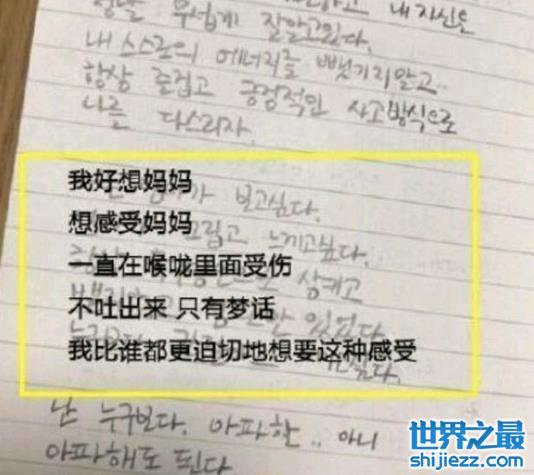 내 자신은
무섭게 잘알고있다.
내 스스로의 에너지를 뺏기지말고
항상 즐겁고 긍정적인 사고방식으로
나를 다스리자.
我好想妈妈
가 보고싶다.
想感受妈妈
그립고 느끼고싶다.
一直在喉咙里面受伤
삼키고
不吐出来 只有梦话
있었다
我比谁都更迫切地想要这种感受
난 누구보다. 아파한.. 아니
아파해도 된다
世界之最
shijiezz.com